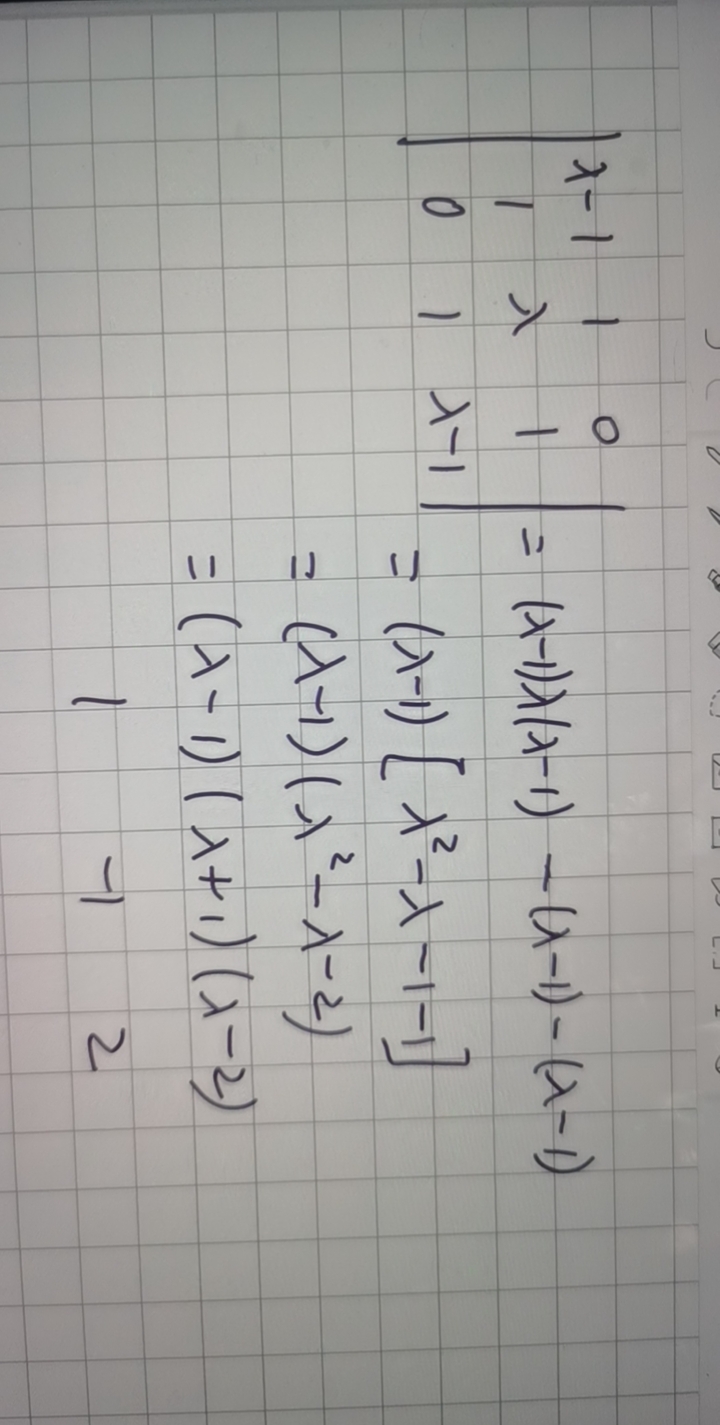 | λ-1 1 0 |
| 1 λ 1 | = (λ-1)λ(λ-1) - (λ-1) - (λ-1)
| 0 1 λ-1 |
= (λ-1) [λ² - λ - 1 - 1]
= (λ-1) (λ² - λ - 2)
= (λ-1) (λ+1) (λ-2)
1 -1 2